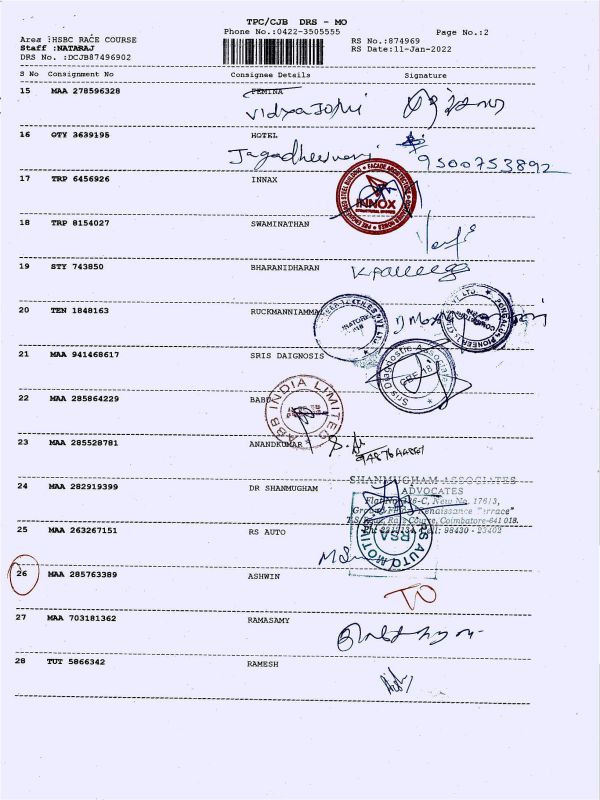 TPC/CJB DRS - MO
Phone No.:0422-3505555 Page No.:2
Area :HSBC RACE COURSE RS No.:874969
Staff :NATARAJ RS Date:11-Jan-2022
DRS No. :DCJB87496902
S No Consignment No Consignee Details Signature
15 MAA 278596328 FEMINA
Vidyajothi
16 OTY 3639195 HOTEL
Jagadheeswari 9500753892
17 TRP 6456926 INNAX
INNOX
18 TRP 8154027 SWAMINATHAN
19 STY 743850 BHARANIDHARAN
20 TEN 1848163 RUCKMANNIAMMA
21 MAA 941468617 SRIS DAIGNOSIS
Sris Diagnostic Associate
CBE-18
22 MAA 285864229 BABU
ABB INDIA LIMITED
23 MAA 285528781 ANANDKUMAR
24 MAA 282919399 DR SHANMUGHAM
SHANMUGHAM ASSOCIATES
ADVOCATES
Renaissance
Race Course, Coimbatore-641 018.
98430 - 23402
25 MAA 263267151 RS AUTO
RS AUTO MOTI
RSA
26 MAA 285763389 ASHWIN
TO
27 MAA 703181362 RAMASAMY
28 TUT 5866342 RAMESH